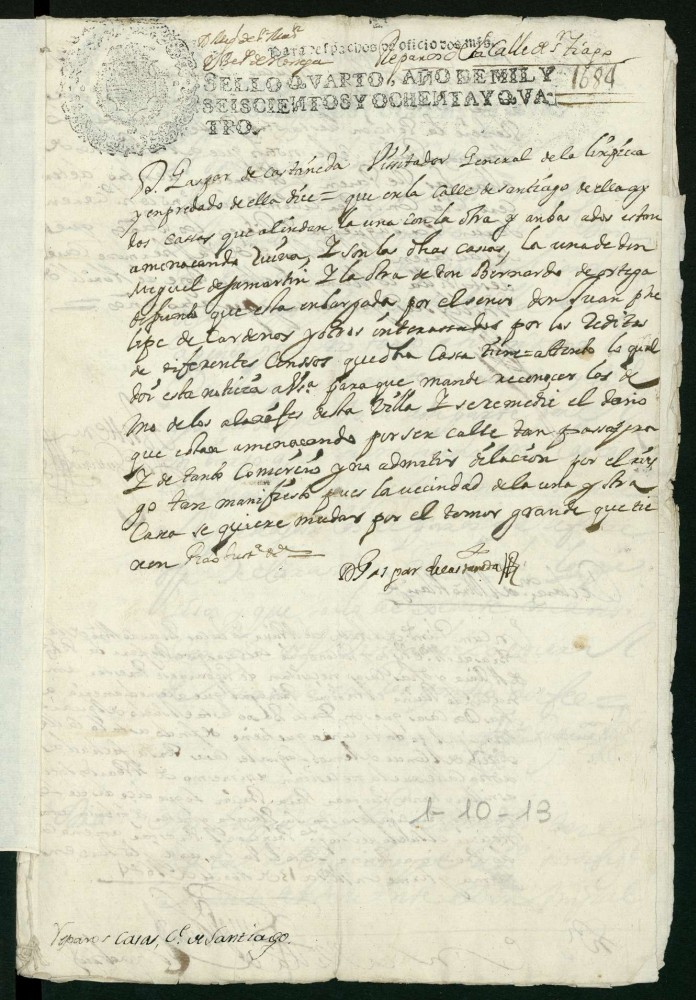 Para despachos de oficio dos mrs.
Reparos Calle de S.tiago
SELLO QVARTO, AÑO DE MIL Y
SEISCIENTOS Y OCHENTA Y QVA-
TRO.
1684
D. Gaspar de castañeda Visitador General de la limpieca
y enpredado de ella dice = que en la Calle de santiago de ella ay
dos Casas que alindan la una con la otra y anbas ados estan
amenacando Ruina, Y son las dhas casas, la una de don
Miguel de samartin Y la otra de don Bernardo de ortega
difunto que esta enbargada por el senor don Juan phe
lipe de Cardenas y otros interessados por los Reditos
de diferentes Censsos que dha Casa tiene = atento lo qual
doi esta noticia a Vsa para que mande reconocer los
mo de los alarifes desta Villa Y se remedie el dano
que estan amenacando por ser calle tan passajera
Y de tanto Comercio y no admitir dilacion por el ries
go tan manifiesto pues la vecindad de la una y otra
Casa se quiere mudar por el temor grande que tie
nen
D Gaspar de castaneda
1-10-13
Reparos Casas, C.e de Santiago.